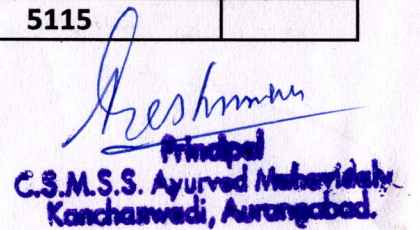 5115
Principal
C.S.M.S.S. Ayurved Mahavidaly
Kanchanwadi, Aurangabad.